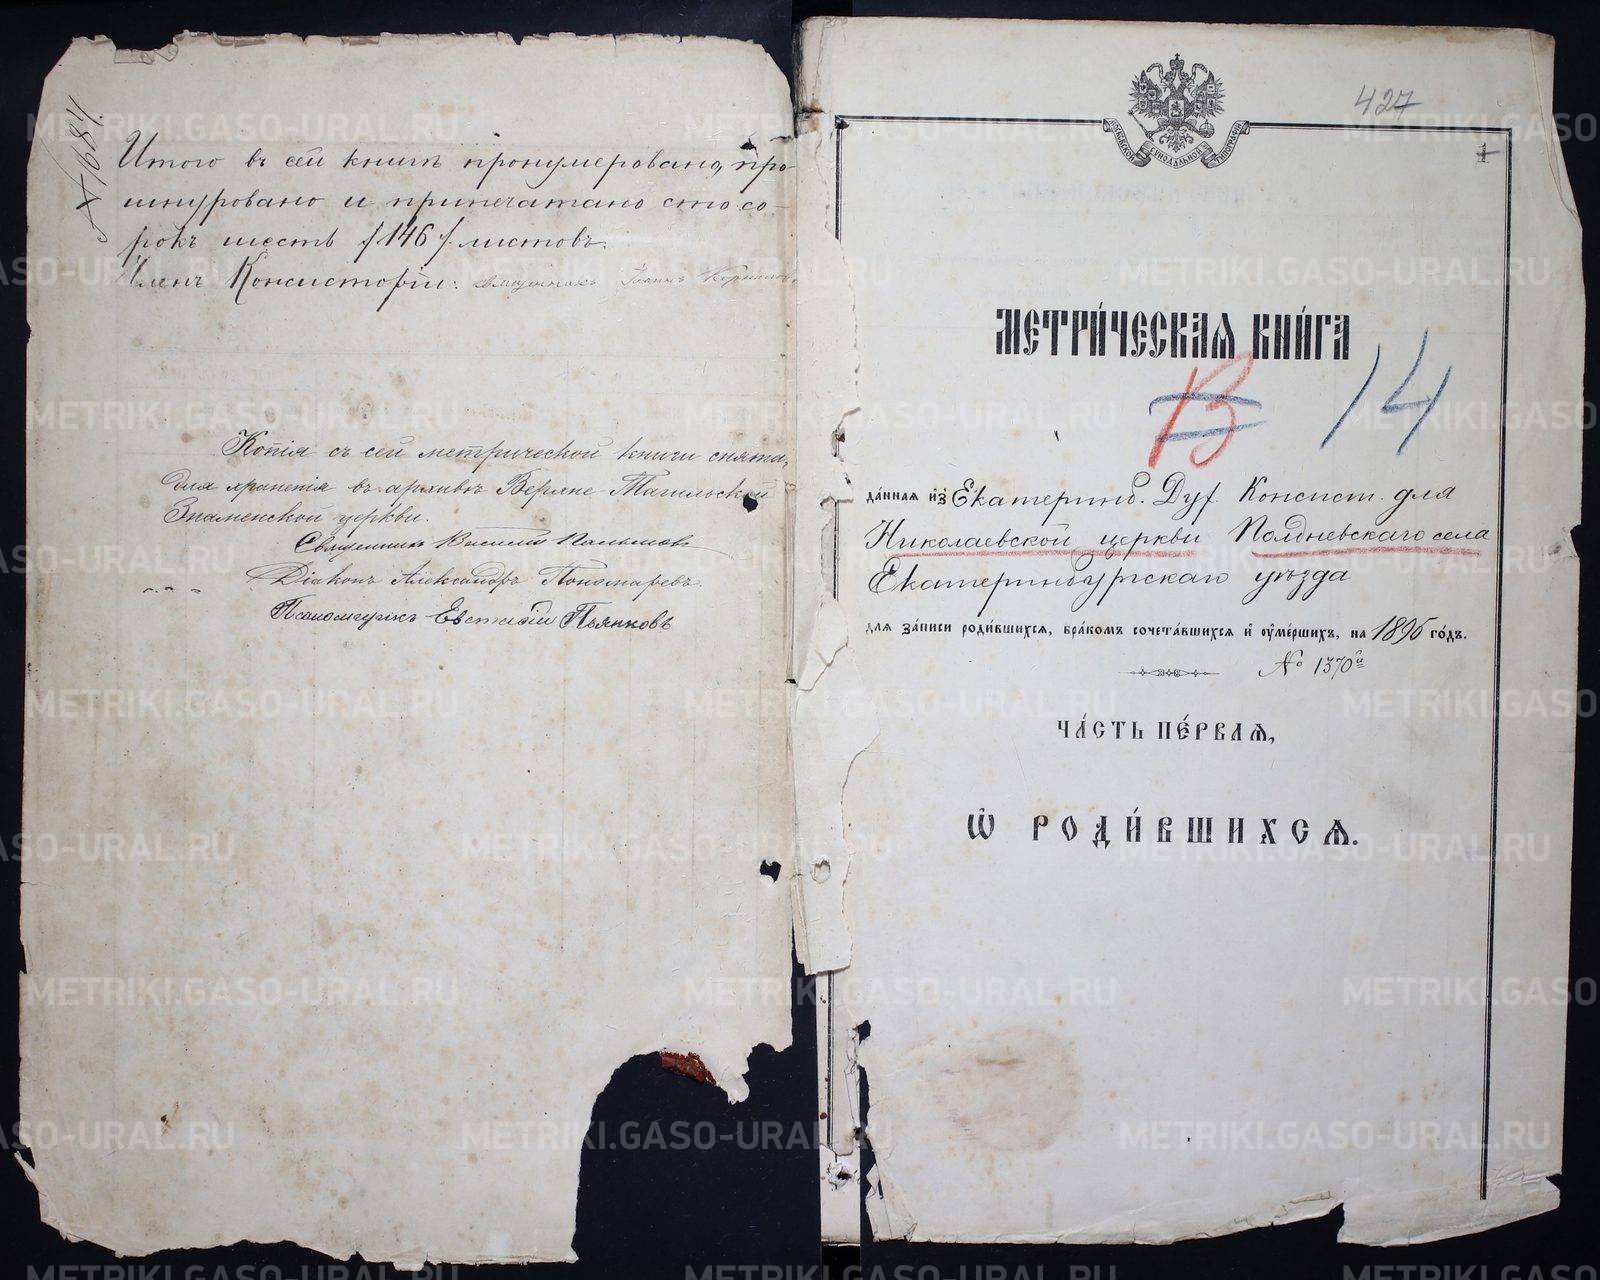 № 1684.
Итого въ сей книгѣ пронумеровано, про-
шнуровано и припечатано сто со-
рокъ шесть /146/ листовъ.
Членъ Консисторіи: священникъ Іоаннъ
Копія съ сей метрической книги снята
для храненія въ архивѣ Верхне Тагильской
Знаменской церкви.
Священникъ Василій
Діаконъ Александръ Пономаревъ
Псаломщикъ Евстафій Пьянковъ
427
1
МОСКОВСКОЙ СѴНОДАЛЬНОЙ ТИПОГРАФІИ
МЕТРИ́ЧЕСКАѦ КНИ́ГА
13 14
да́нная и҆з̾ Екатеринб. Дух. Консист. для
Николаевской церкви Полдневскаго села
Екатеринбургскаго уѣзда
для за́писи роди́вшихсѧ, бра́комъ сочета́вшихсѧ и҆ ᲂу҆ме́ршихъ, на 1896 го́дъ.
№ 1370й
ЧА́СТЬ ПЕ́РВАѦ,
Ѽ РОДИ́ВШИХСѦ.
METRIKI.GASO-URAL.RU